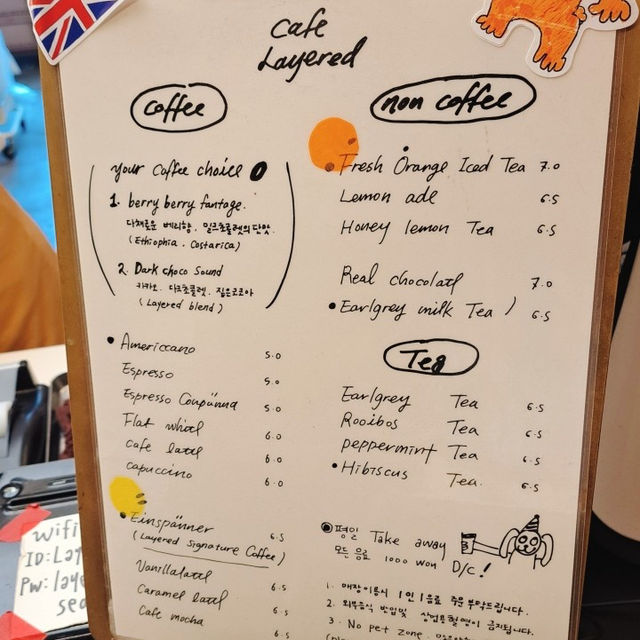 cafe
Layered
coffee
your coffee choice
1. berry berry fantage.
다채로운 베리향. 밀크초콜렛의 단맛.
(Ethiophia. Costarica)
2. Dark choco sound
카카오. 다크초콜렛. 짙은코코아
(Layered blend)
• Americcano 5.0
Espresso 5.0
Espresso Coupánna 5.0
Flat whitl 6.0
cafe lattl 6.0
capuccino 6.0
• Einspänner 6.5
(Layered Signature Coffee)
Vanillalattl 6.5
Caramel lattl 6.5
Cafe mocha 6.5
non coffee
• Fresh Orange Iced Tea 7.0
Lemon ade 6.5
Honey lemon Tea 6.5
Real chocolatl 7.0
• Earlgrey milk Tea 6.5
Tea
Earlgrey Tea 6.5
Rooibos Tea 6.5
peppermint Tea 6.5
• Hibiscus Tea. 6.5
평일 Take away
모든 음료 1000 won D/C!
1. 매장이용시 1인 1음료 주문 부탁드립니다.
2. 외부음식 반입및 촬영이 금지됩니다.
3. No pet zone.
wifi
ID: Lay
Pw: laye
seo